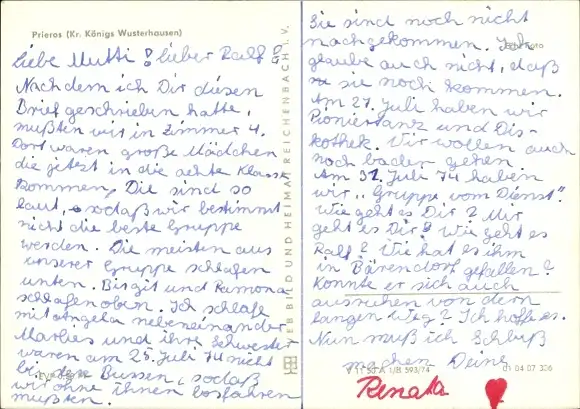 Prieros (Kr. Königs Wusterhausen)
Liebe Mutti! lieber Ralf!
Nachdem ich Dir diesen
Brief geschrieben hatte,
mußten wir in Zimmer 4.
Dort waren große Mädchen
die jetzt in die achte Klasse
kommen, Die sind so
laut, sodaß wir bestimmt
nicht die beste Gruppe
werden. Die meisten aus
unserer Gruppe schlafen
unten. Birgit und Ramona
schlafen oben. Ich schlafe
mit Angela nebeneinander
Marlies und ihre Schwester
waren am 25. Juli 74 nicht
bei den Bussen, sodaß
wir ohne ihnen losfahren
mußten.
BILD UND HEIMAT REICHENBACH I. V.
Sie sind noch nicht
nachgekommen. Ich
glaube auch nicht, daß
sie noch kommen.
Am 27. Juli haben wir
Pioniertanz und Dis-
kothek. Wir wollen auch
noch baden gehen.
Am 31. Juli 74 haben
wir "Gruppe vom Dienst".
Wie geht es Dir? Mir
geht es Dir? Wie geht es
Ralf? Wie hat es ihm
in Bärendorf gefallen?
Konnte er sich auch
ausruhen von dem
langen Weg? Ich hoffe es.
Nun muß ich Schluß
machen Deine
A 1/B 593/74
01 04 07 326
Renata